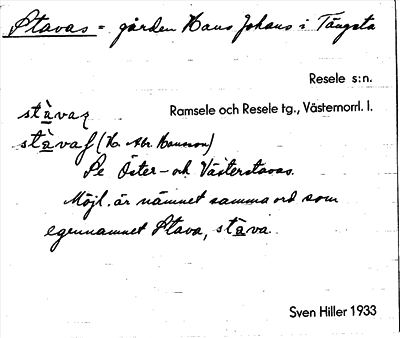 Stavas = gården Hans Johans i Tängsta
Resele s:n.
Ramsele och Resele tg., Västernorrl. l.
stàvaz
stàvas (H. Abr. Hansson)
Se Öster- och Västerstavas.
Möjl. är nämnet samma ord som
egennamnet Stava, stàva.
Sven Hiller 1933